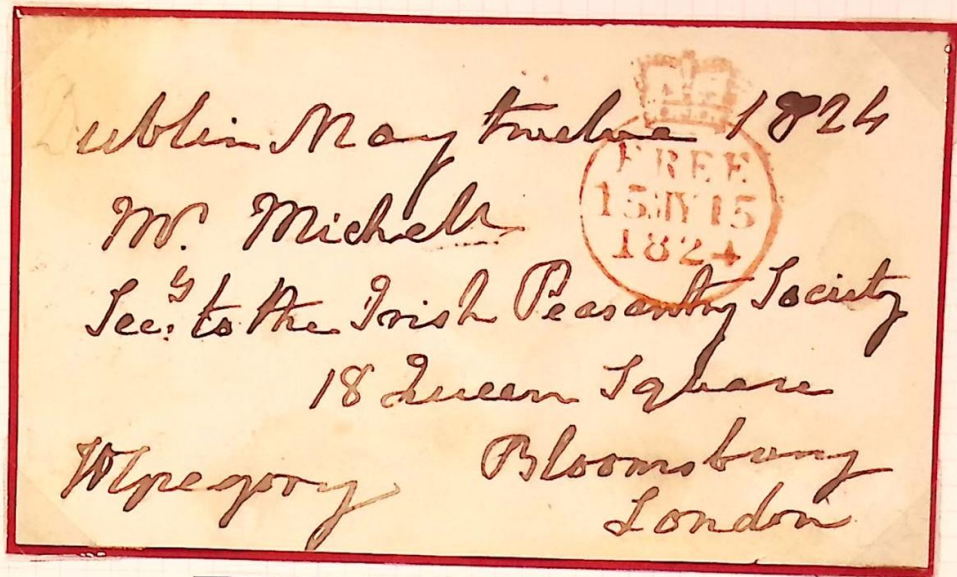 Dublin May twelve 1824
FREE
15 MY 15
1824
Mr. Michell
Secy. to the Irish Peasantry Society
18 Queen Square
Bloomsbury
WGregory
London